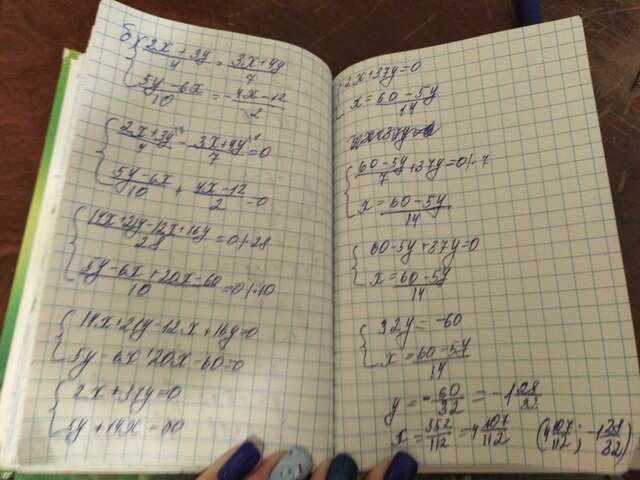 б) { (2x + 3y)/4 = (3x + 4y)/7
(5y - 6x)/10 = -(4x - 12)/2
{ (2x + 3y)/4 - (3x + 4y)/7 = 0
(5y - 6x)/10 + (4x - 12)/2 = 0
{ (14x + 21y - 12x + 16y)/28 = 0 | · 28
(5y - 6x + 20x - 60)/10 = 0 | · 10
{ 14x + 21y - 12x + 16y = 0
5y - 6x + 20x - 60 = 0
{ 2x + 37y = 0
5y + 14x = 60
{ 2x + 37y = 0
x = (60 - 5y)/14
{ (60 - 5y)/7 + 37y = 0 | · 7
x = (60 - 5y)/14
{ 60 - 5y + 37y = 0
x = (60 - 5y)/14
{ 32y = -60
x = (60 - 5y)/14
y = -60/32 = -1 28/32
x = 552/112 = 4 107/112 (4 107/112; -1 28/32)